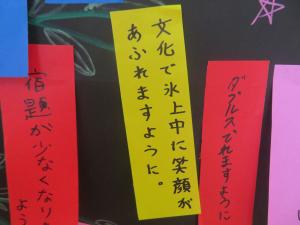 文化で氷上中に笑顔が
あふれますように。
ダブルスでれますように
宿題が少なくなりま
よう